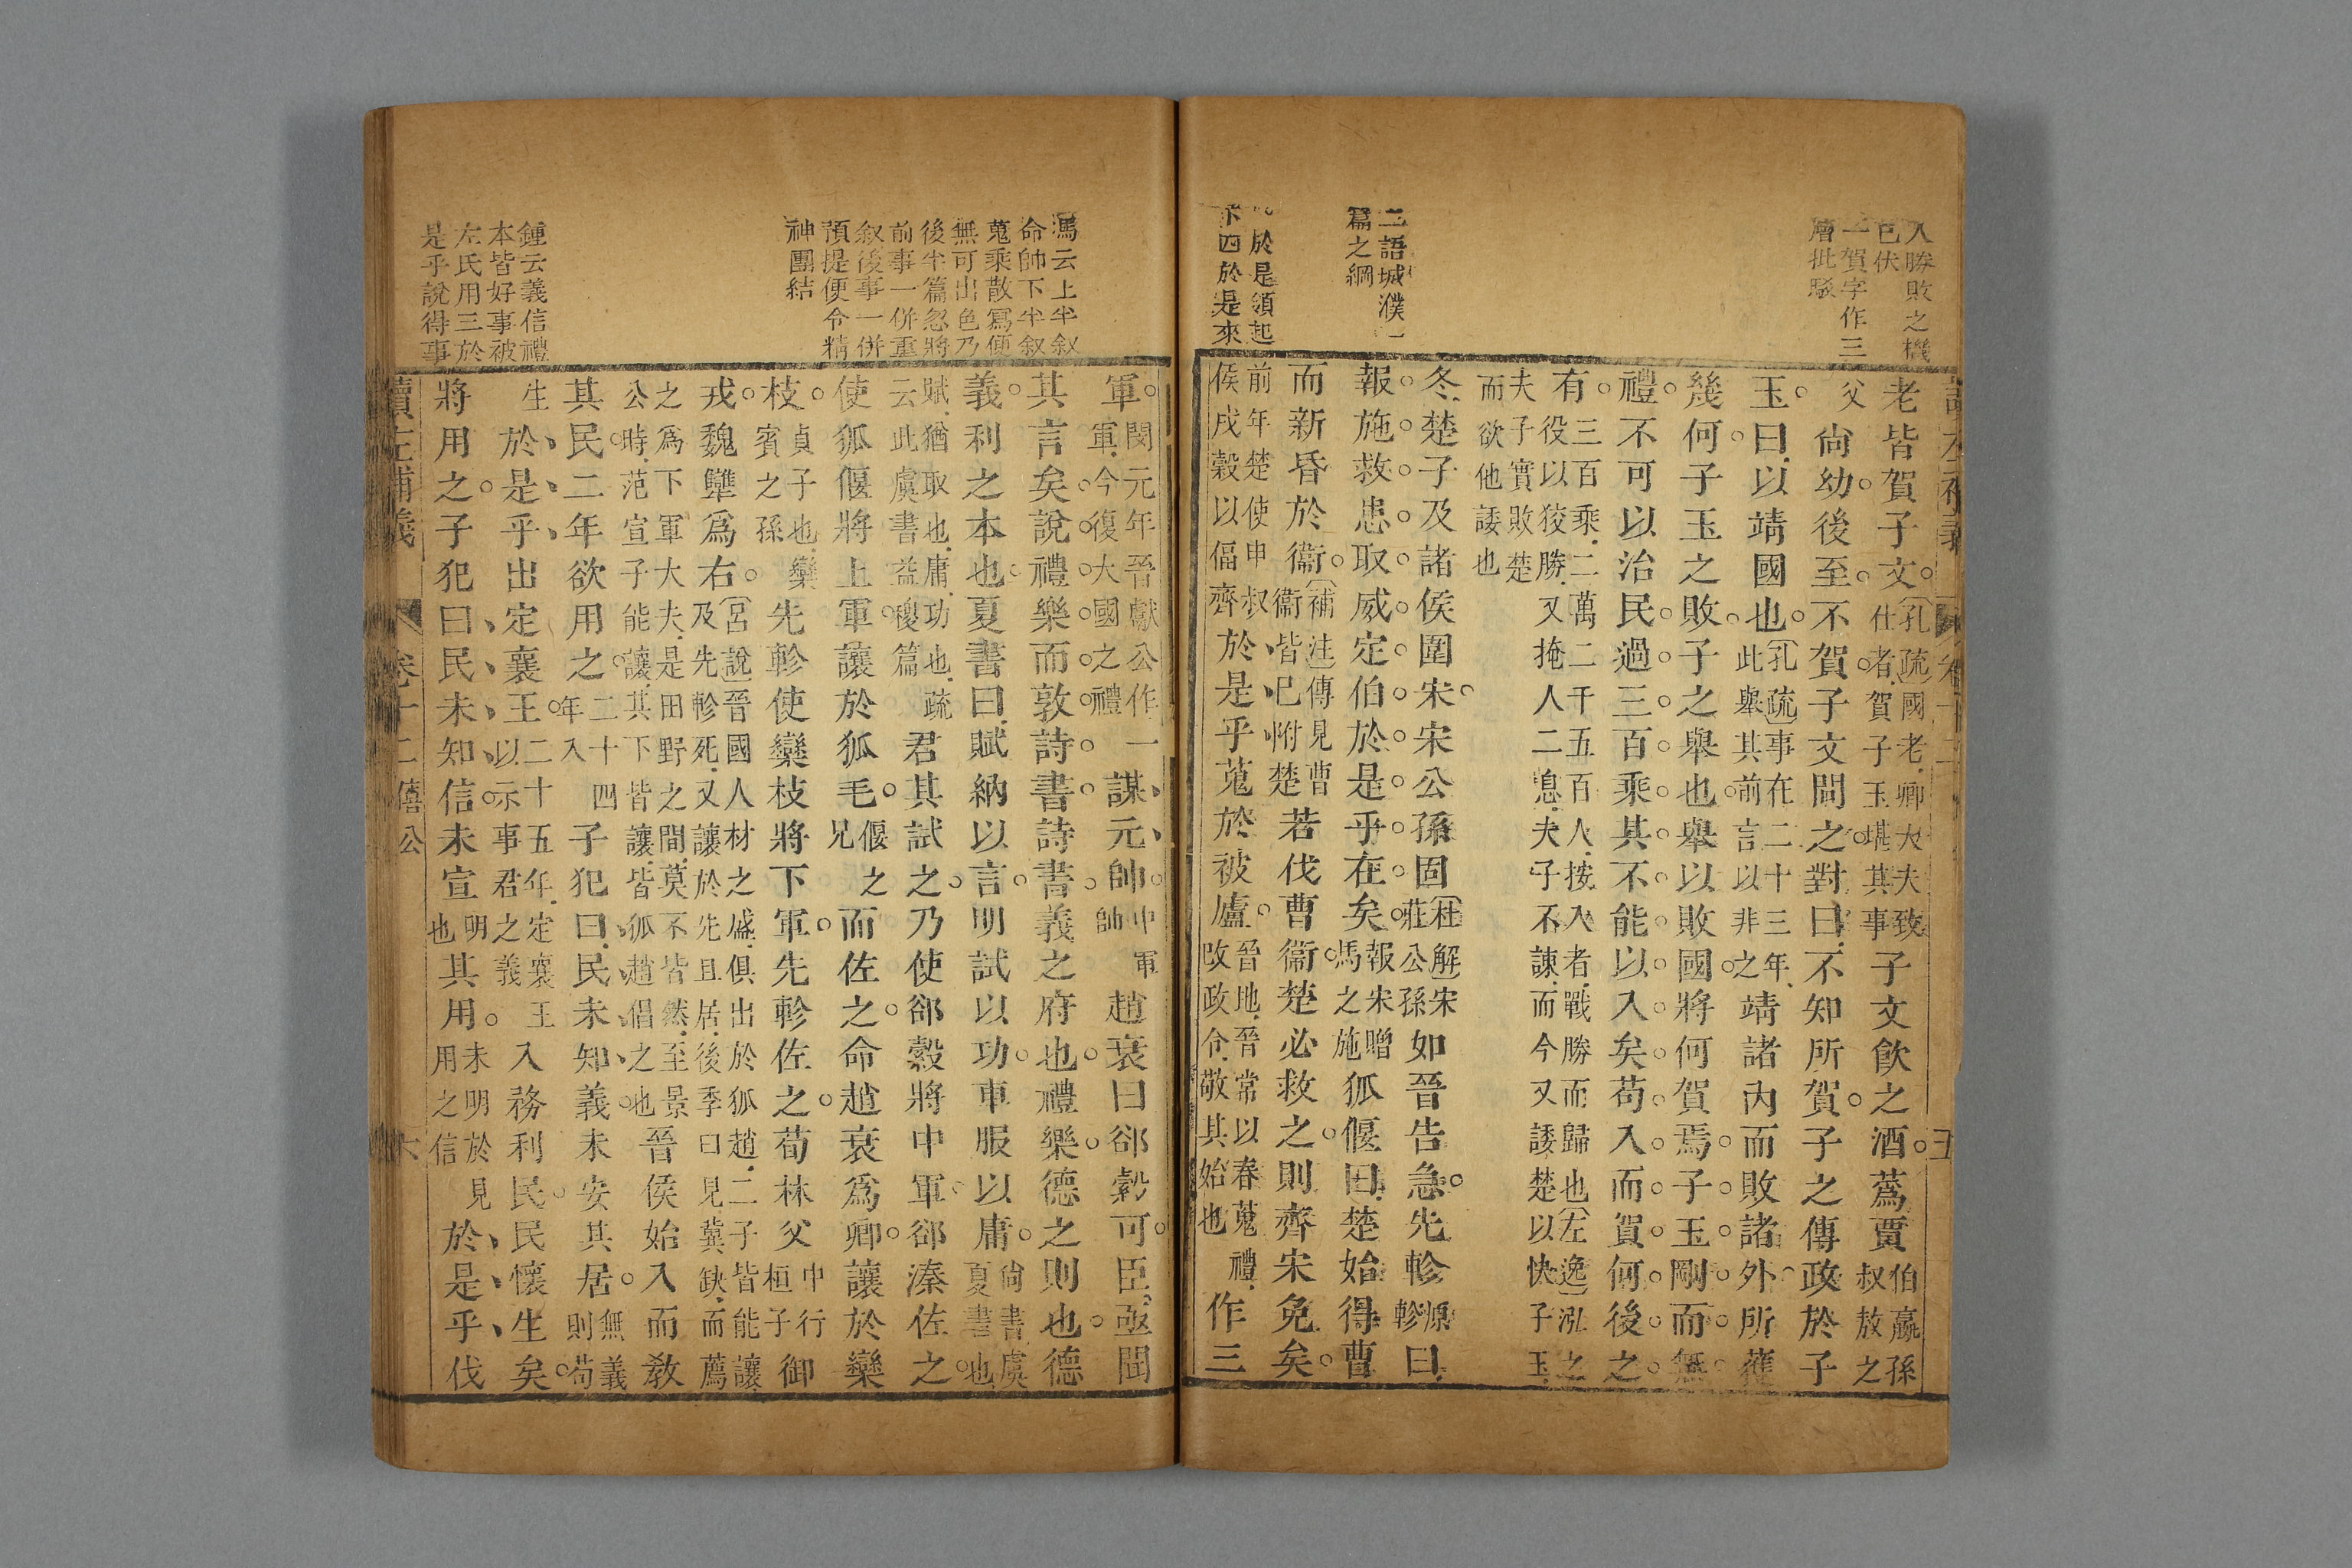 入勝敗之機
已伏
一賀字作三
層批駁
二語城濮一
篇之綱
於是領起
下四於是來
老皆賀子文孔疏國老卿大夫致仕者賀子玉堪其事子文飲之酒蔿賈伯嬴孫叔敖之
父尙幼後至不賀子文問之對曰不知所賀子之傳政於子
玉曰以靖國也孔疏事在二十三年此舉其前言以非之靖諸內而敗諸外所獲
幾何子玉之敗子之舉也舉以敗國將何賀焉子玉剛而無
禮不可以治民過三百乘其不能以入矣苟入而賀何後之
有三百乘二萬二千五百人按入者戰勝而歸也左逸泓之役以狡勝又掩人二憝夫子不諫而今又諉楚以快子玉
夫子實敗楚而欲他諉也
冬楚子及諸侯圍宋宋公孫固杜解宋莊公孫如晉告急先軫原軫曰
報施救患取威定伯於是乎在矣報宋贈馬之施狐偃曰楚始得曹
而新昏於衞補注傳見曹衞皆已附楚若伐曹衞楚必救之則齊宋免矣
前年楚使申叔侯戍穀以偪齊於是乎蒐於被廬晉地晉常以春蒐禮改政令敬其始也作三
馮云上半叙
命帥下半叙
蒐乘散寫便
無可出色乃
後半篇忽將
前事一併重
叙後事一併
預提便令精
神團結
鍾云義信禮
本皆好事被
左氏用三於
是乎說得事
軍閔元年晉獻公作一軍今復大國之禮謀元帥中軍帥趙衰曰郤縠可臣亟聞
其言矣說禮樂而敦詩書詩書義之府也禮樂德之則也德
義利之本也夏書曰賦納以言明試以功車服以庸尙書虞夏書也
賦猶取也庸功也疏云此虞書益稷篇君其試之乃使郤縠將中軍郤溱佐之
使狐偃將上軍讓於狐毛偃之兄而佐之命趙衰爲卿讓於欒
枝貞子也欒賓之孫先軫使欒枝將下軍先軫佐之荀林父中行桓子御
戎魏犨爲右呂說晉國人材之盛俱出於狐趙二子皆能讓及先軫死又讓於先且居後季曰見冀缺而薦
之爲下軍大夫是田野之間莫不皆然至景公時范宣子能讓其下皆讓皆狐趙倡之也晉侯始入而敎
其民二年欲用之二十四年入子犯曰民未知義未安其居無義則苟
生於是乎出定襄王二十五年定襄王以示事君之義入務利民民懷生矣
將用之子犯曰民未知信未宣明也其用未明於見用之信於是乎伐
讀左補義 卷十二 僖公 六